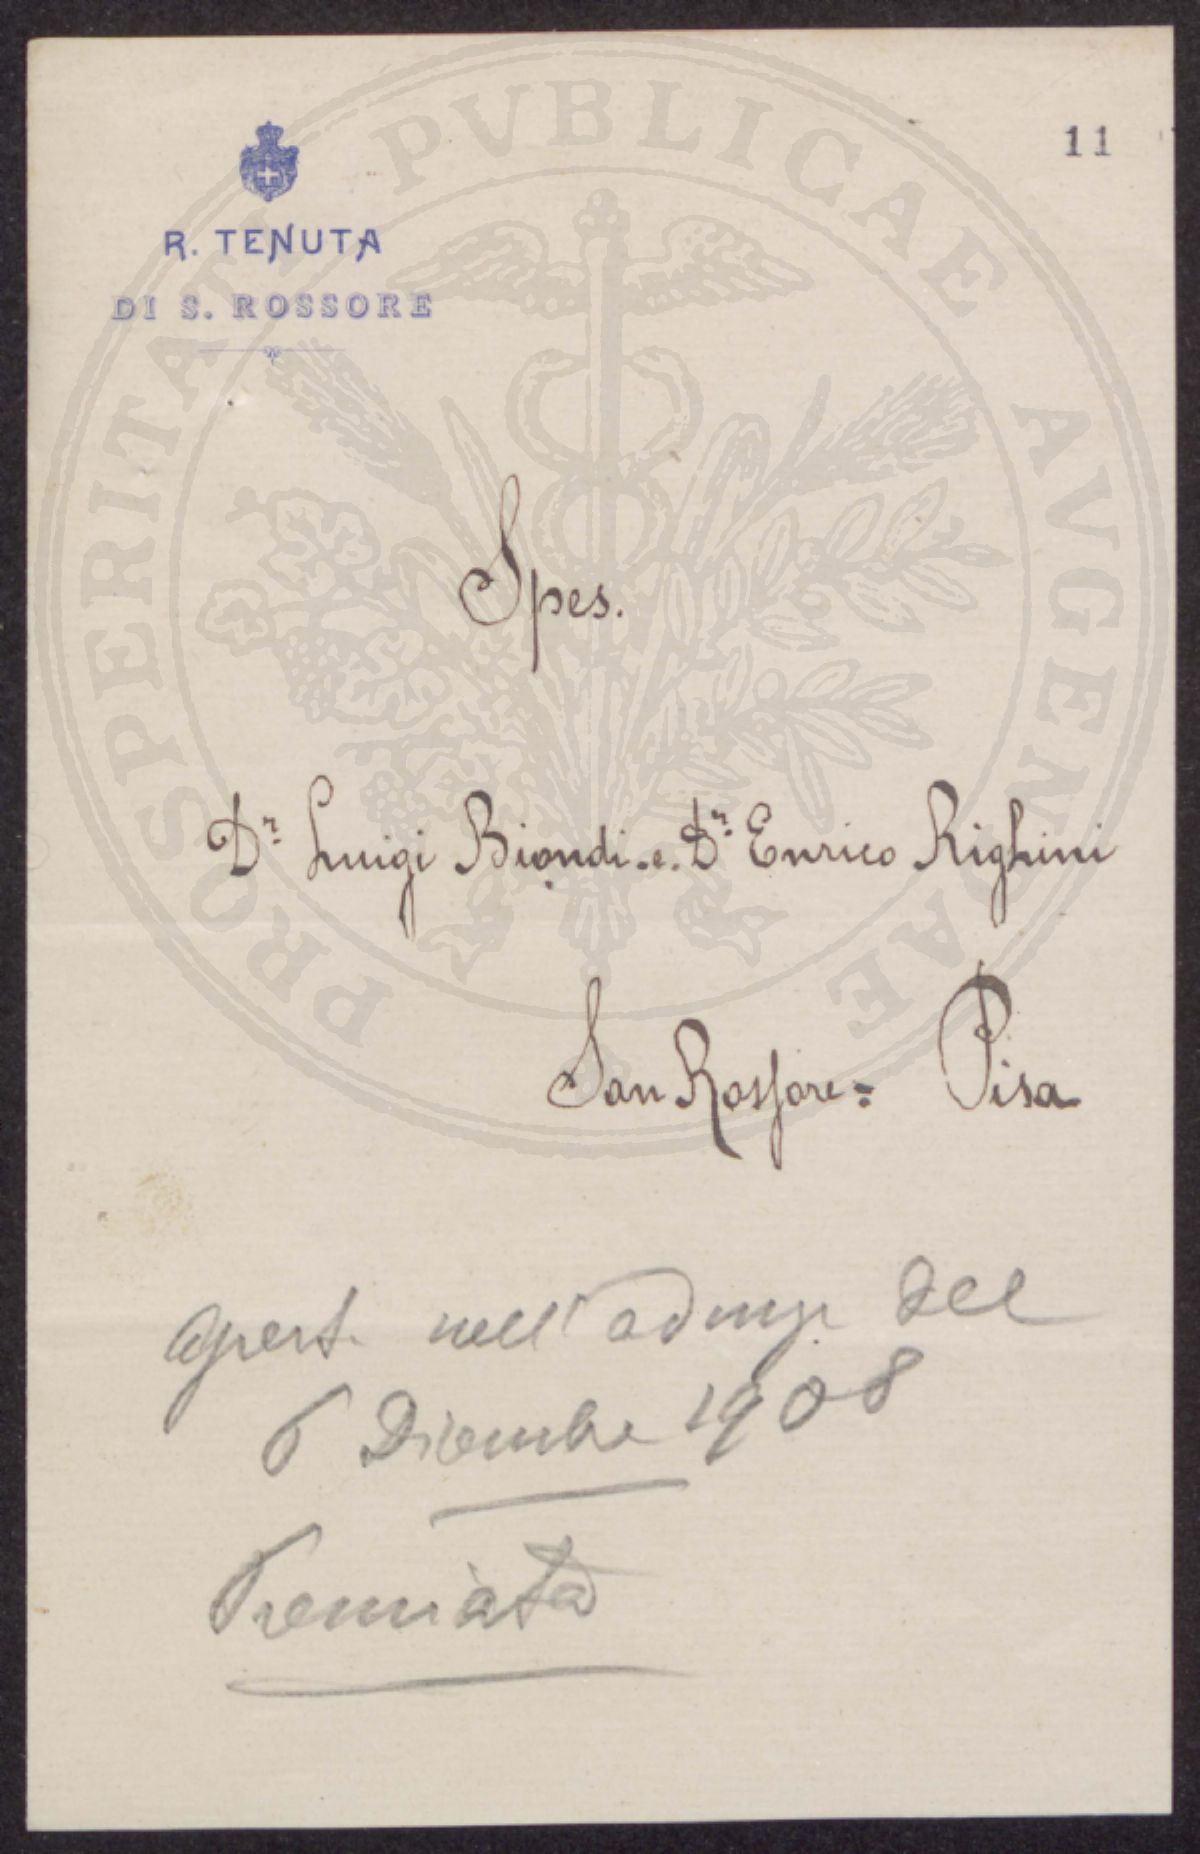 PROSPERITATI PVBLICAE AVGENDAE
11
R. TENUTA
DI S. ROSSORE
Spes.
Dr. Luigi Biondi. e. Dr. Enrico Righini
San Rossore = Pisa
apert. nell'adunza del
6 Dicembre 1908
Premiata